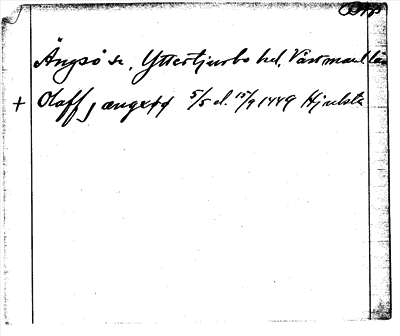 Ängsö sn, Yttertjurbo hd, Västmanl län
+ Olaff j ængxø 5/5 el. 15/9 1449 Hjulsta